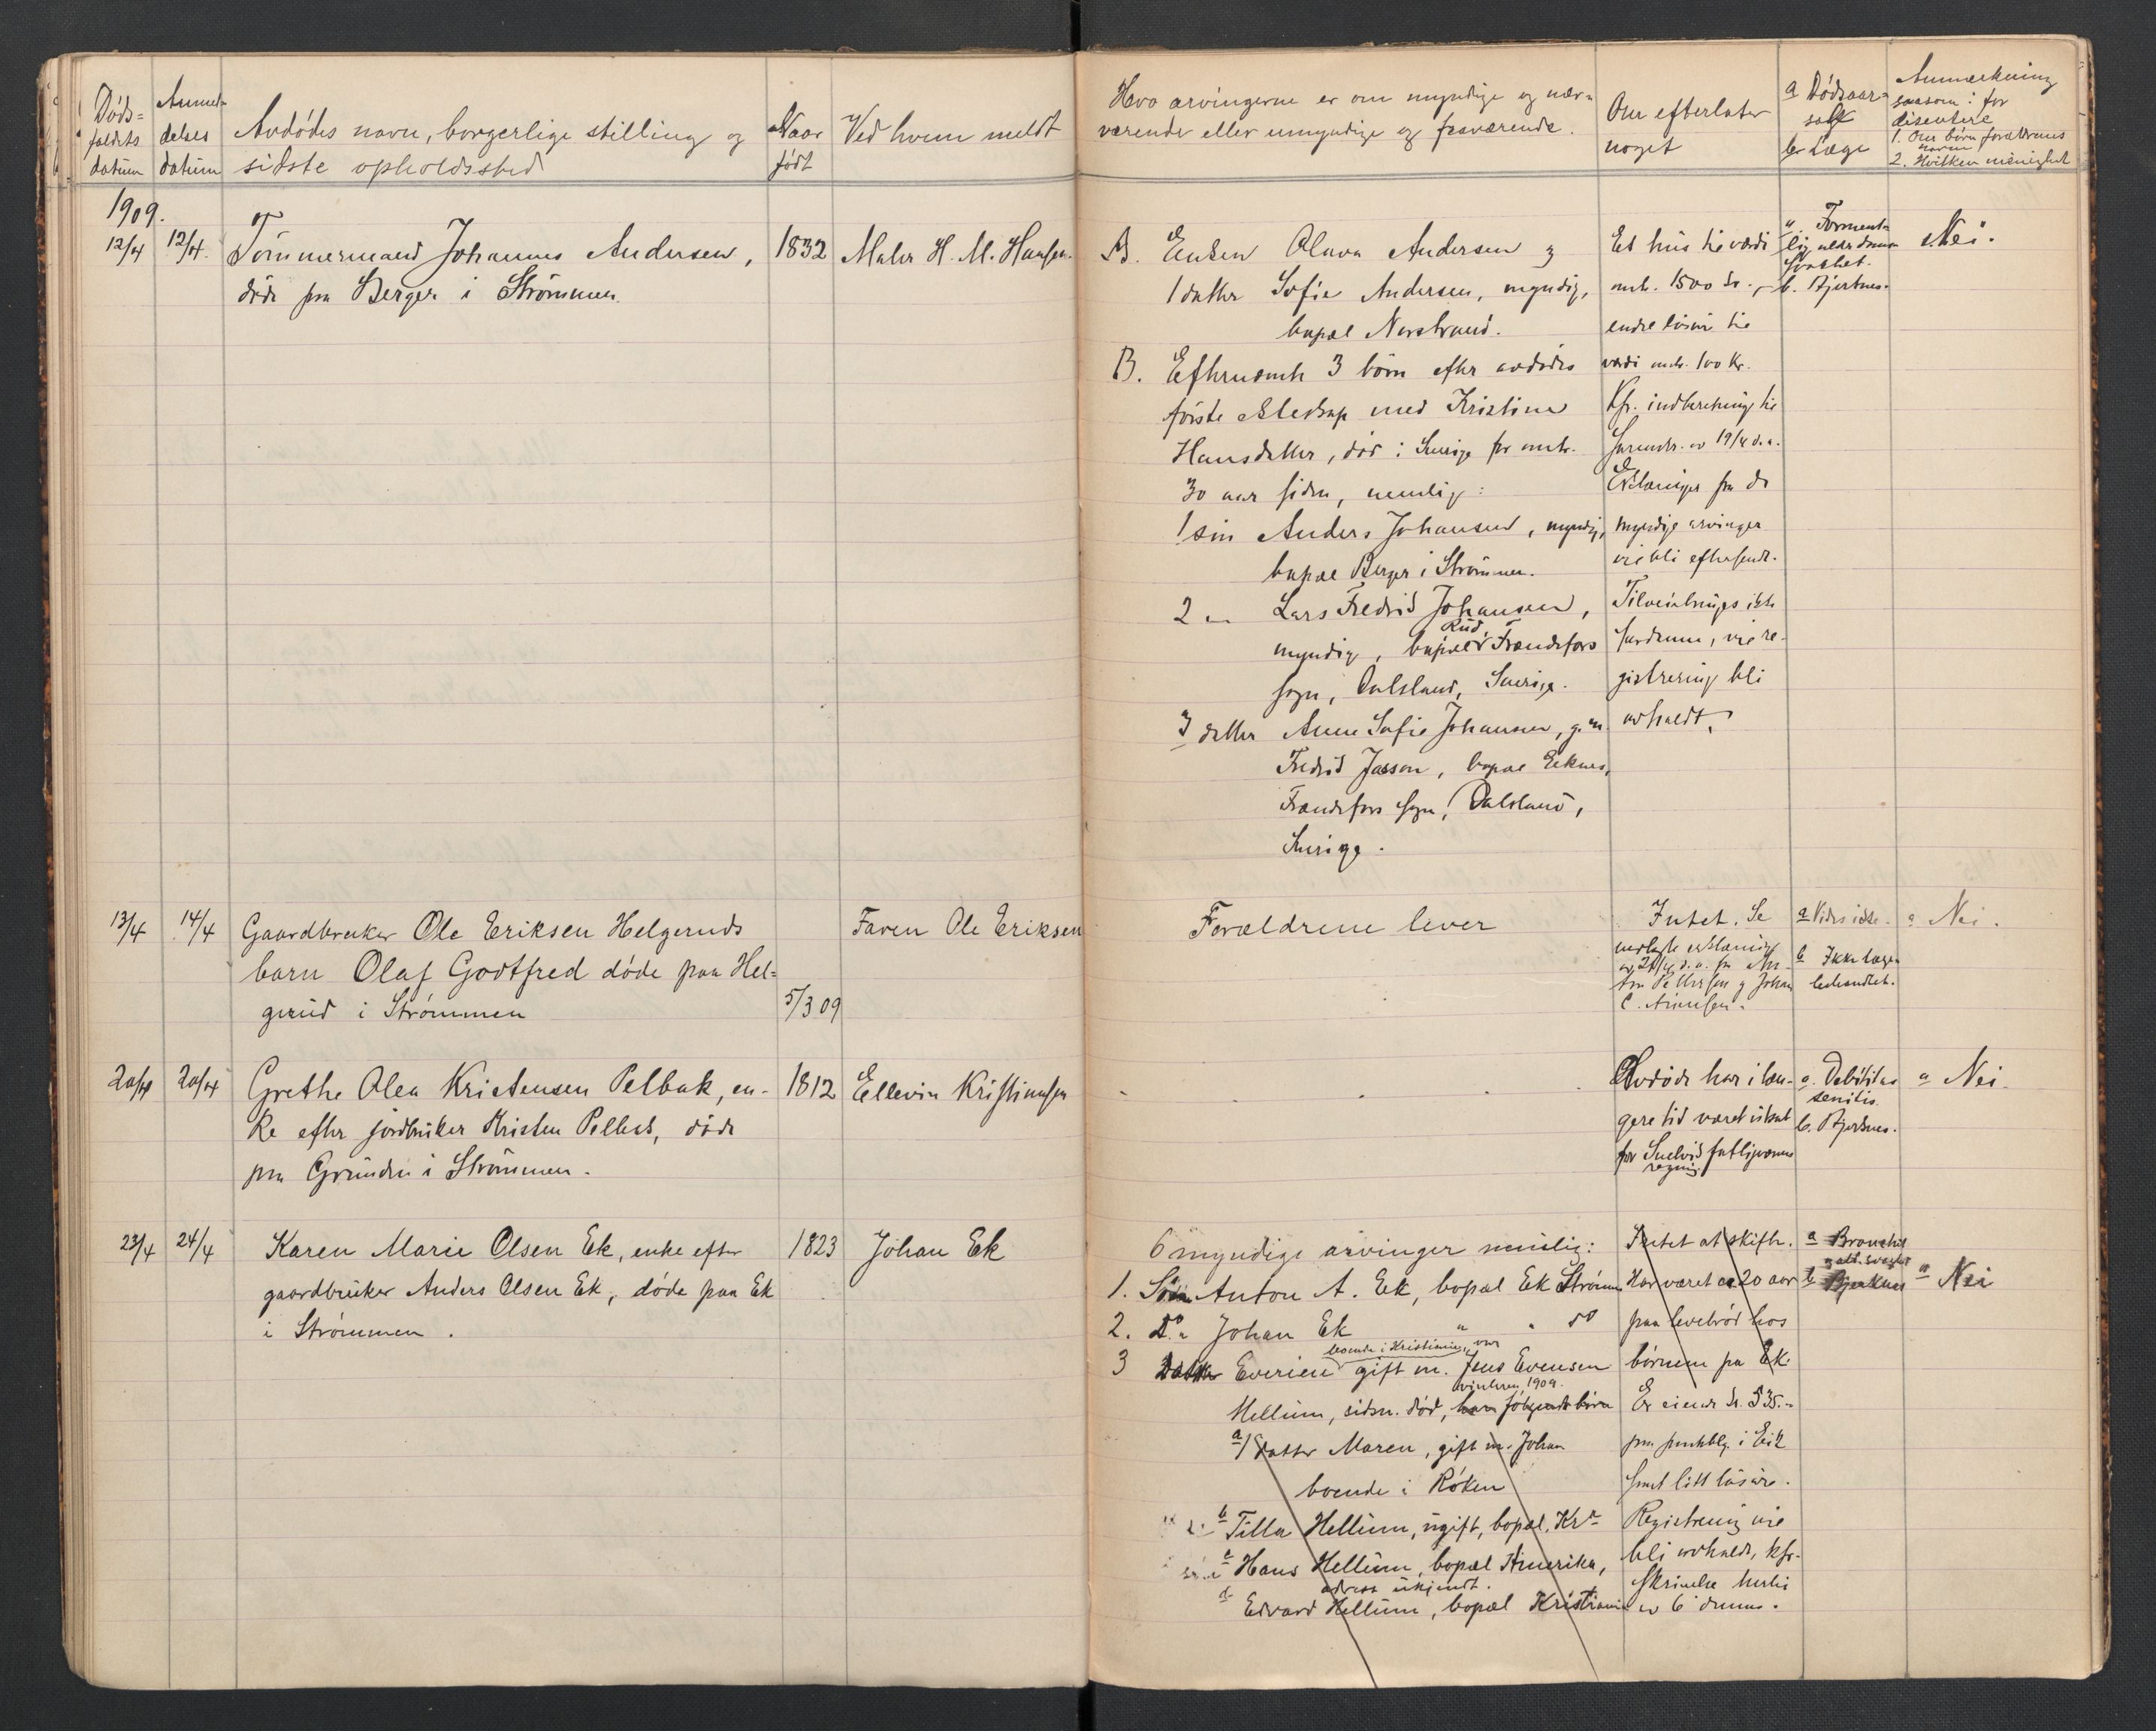 Døds-
faldets
datum
Anmel-
delses
datum
Avdødes navn, borgerlige stilling og
sidste opholdssted
Naar
født
Ved hvem meldt
Hvo arvingerne er om myndige og nær-
værende eller umyndige og fraværende.
Om efterlater
noget
a Dødsaar-
sak
b Læge
Anmærkning
saasom: for
disentere
1. Om børn forældrenes
navn
2. Hvilken menighet
1909.
12/4 12/4. Tømmermand Johannes Andersen,
døde paa Berger i Strømmen.
1832
Maler H. M. Hansen.
A. Enken Olava Andersen og
1 datter Sofie Andersen, myndig,
bopæl Norstrand.
B. Efternævnte 3 børn efter avdødes
første egteskap med Kristine
Hansdatter, død i Sverige for omtr.
30 aar siden, nemlig:
1 søn Anders Johansen, myndig,
bopæl Berger i Strømmen.
2 " Lars Fredrik Johansen,
Rud,
myndig, bopæl Frændefors
sogn, Dalsland, Sverige.
3 datter Anne Sofie Johansen, g. m.
Fredrik Jasson, bopæl Eeknes,
Frændefors sogn, Dalsland,
Sverige.
Et hus til værdi
omtr. 1500 kr.,
endel løsøre til
værdi omtr. 100 kr.
Kfr. indberetning til
Sorenskr. av 19/4 d. a.
Erklæringer fra de
myndige arvinger
vil bli eftersendt.
Tilveiebringes ikke
saadanne, vil re-
gistrering bli
avholdt.
a. Forment-
lig alderdoms-
svakhet.
b. Bjerknes.
Nei.
13/4 14/4 Gaardbruker Ole Eriksen Helgeruds
barn Olaf Godtfred døde paa Hel-
gerud i Strømmen
5/3 09
Faren Ole Eriksen
Forældrene lever
Intet. Se
vedlagte erklæring
av 24/4 d. a. fra
Pettersen og Johan
C.
a Vides ikke.
b Ikke læge-
behandlet.
a Nei.
20/4 20/4 Grethe Olea Kristensen Pelbak, en-
ke efter jordbruker Kristen Pelbak, døde
paa Grunden i Strømmen.
1812
Ellevin Kristiansen
Avdøde har i læn-
gere tid været utsat
for Snelvik fattigvæsens
regning
a. Debilitas
senilis.
b. Bjerknes.
a Nei.
23/4 24/4 Karen Marie Olsen Ek, enke efter
gaardbruker Anders Olsen Ek, døde paa Ek
i Strømmen.
1823
Johan Ek
6 myndige arvinger nemlig:
1. Søn Anton A. Eek, bopæl Ek Strømm
2. Do " Johan Ek " " do
boende i Kristiania, var
3 Datter Everine gift m. Jens Evensen
vinteren 1909.
Hellum, siden død, har følgende børn
a/ Datter Maren, gift m. Johan
boende i Røken
b Tilla Hellum, ugift, bopæl, Kra
c Hans Hellum, bopæl Amerika,
adresse ukjendt.
d Edvard Hellum, bopæl Kristiania
Intet at skifte.
Har været ca 20 aar
paa levebrød hos
børnene paa Ek.
Er eiende kr. 535.-
paa sparebkbg. i Eik
samt litt løsøre.
Registrering vil
bli avholdt, kfr.
skrivelse hertil
av 6 dennes.
a Bronchit
og ald. svaghet
b Bjerknes
a Nei